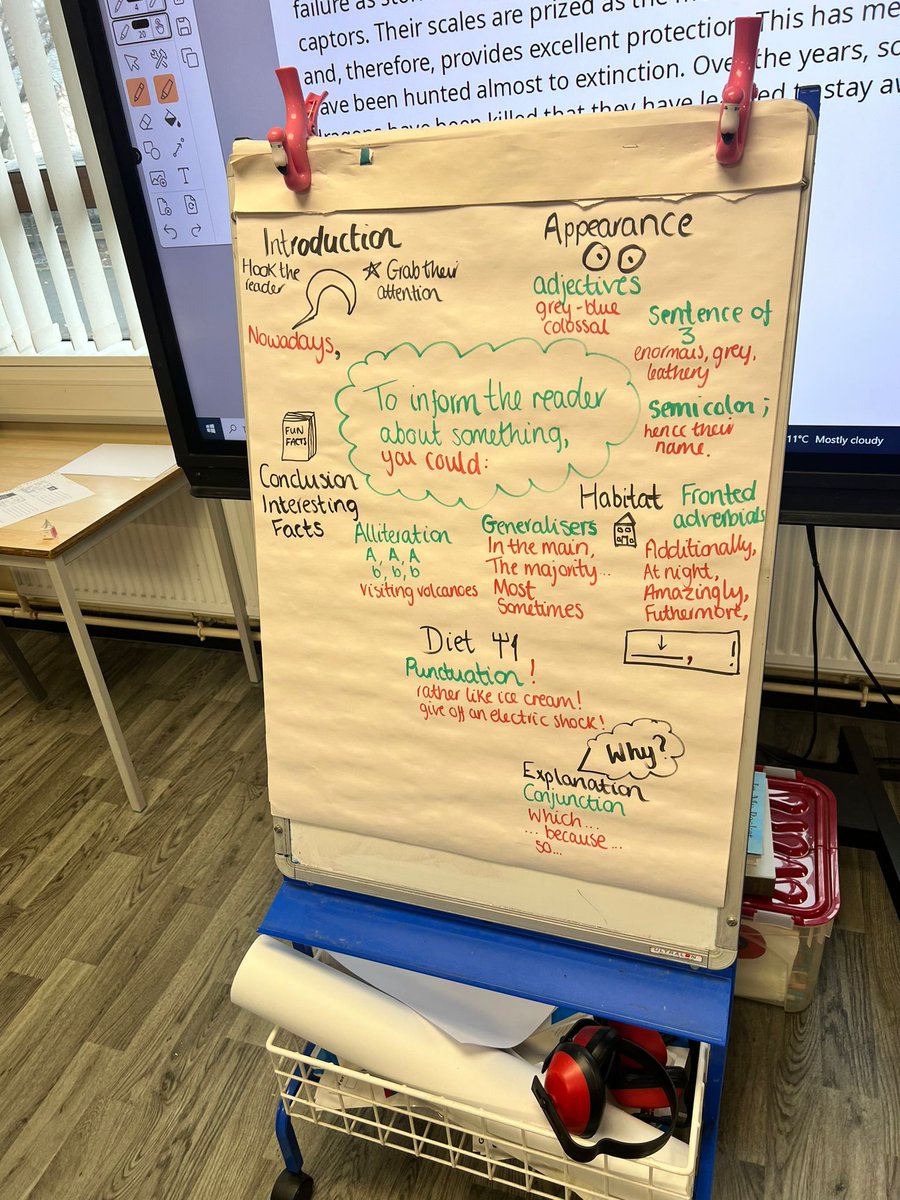 failure as
captors. Their scales are prized as the
and, therefore, provides excellent protection. This has
have been hunted almost to extinction. Over the years,
dragons have been killed that they have learned to stay
4
20
T
Introduction
Hook the
reader
Grab their
attention
Nowadays,
Appearance
adjectives
grey-blue
colossal
Sentence of
3
enormous, grey,
leathery
Semicolon ;
hence their
name.
To inform the reader
about something,
you could:
FUN
FACTS
Conclusion
Interesting
Facts
Alliteration
A, A, A
b, b, b
Visiting volcanoes
Generalisers
In the main,
The majority...
Most
Sometimes
Habitat
Fronted
adverbials
Additionally,
At night,
Amazingly,
Futhermore,
, !
Diet
Punctuation !
rather like ice cream!
give off an electric shock!
Why?
Explanation
Conjunction
Which...
... because ...
so...
11°C Mostly cloudy
ULTRALON